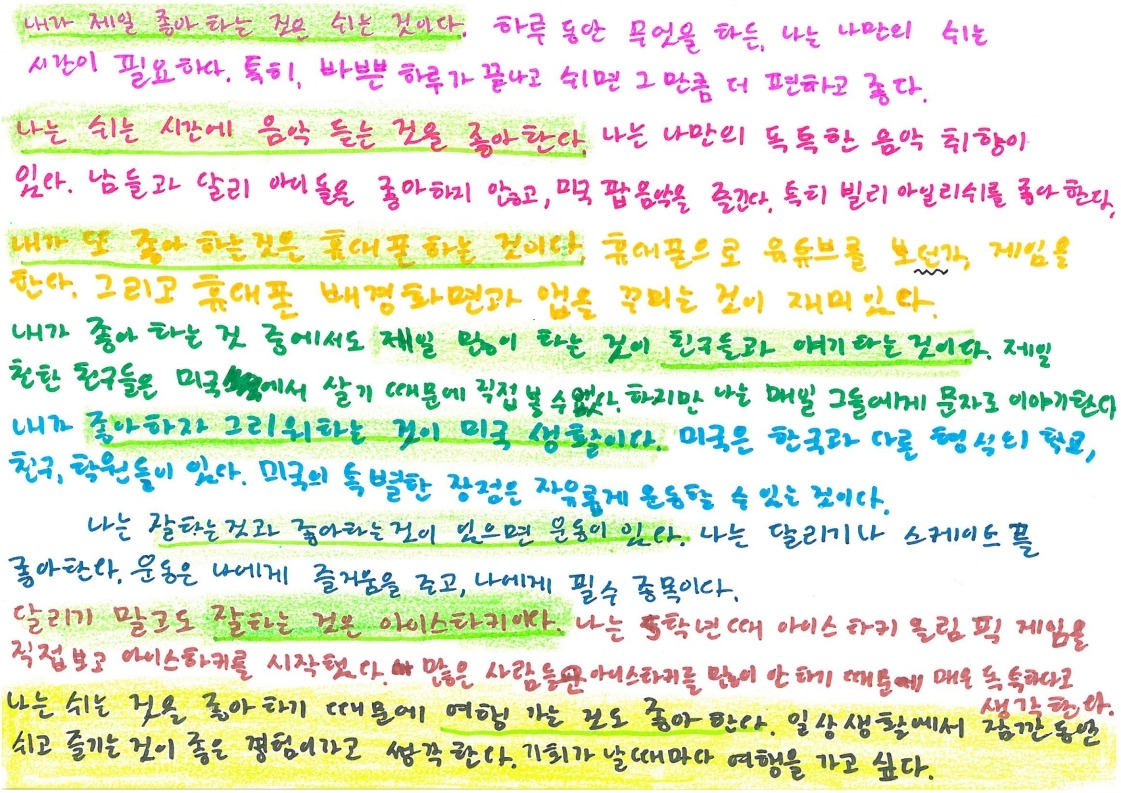 내가 제일 좋아하는 것은 쉬는 것이다. 하루 동안 무엇을 하든, 나는 나만의 쉬는
시간이 필요하다. 특히, 바쁜 하루가 끝나고 쉬면 그 만큼 더 편하고 좋다.
나는 쉬는 시간에 음악 듣는 것을 좋아한다. 나는 나만의 독특한 음악 취향이
있다. 남들과 달리 아이돌은 좋아하지 않고, 미국 팝음악을 즐긴다. 특히 빌리 아일리쉬를 좋아한다.
내가 또 좋아하는것은 휴대폰 하는 것이다. 휴대폰으로 유튜브를 보던가, 게임을
한다. 그리고 휴대폰 배경화면과 앱을 꾸미는 것이 재미있다.
내가 좋아하는 것 중에서도 제일 많이 하는 것이 친구들과 얘기하는것이다. 제일
친한 친구들은 미국에서 살기 때문에 직접 볼 수 없다. 하지만 나는 매일 그들에게 문자로 이야기한다
내가 좋아하자 그리워하는 것이 미국 생활이다. 미국은 한국과 다른 형식의 학교,
친구, 학원들이 있다. 미국의 특별한 장점은 자유롭게 운동할 수 있는 것이다.
나는 잘하는것과 좋아하는것이 있으면 운동이 있다. 나는 달리기나 스케이트를
좋아한다. 운동은 나에게 즐거움을 주고, 나에게 필수 종목이다.
달리기 말고도 잘하는 것은 아이스하키이다. 나는 5학년때 아이스하키 올림픽 게임을
직접보고 아이스하키를 시작했다. 많은 사람들은 아이스하키를 많이 안하기 때문에 매우 독특하다고
생각한다.
나는 쉬는 것을 좋아하기 때문에 여행 가는 것도 좋아한다. 일상생활에서 잠깐동안
쉬고 즐기는것이 좋은 경험이가고 생각한다. 기회가 날때마다 여행을 가고 싶다.